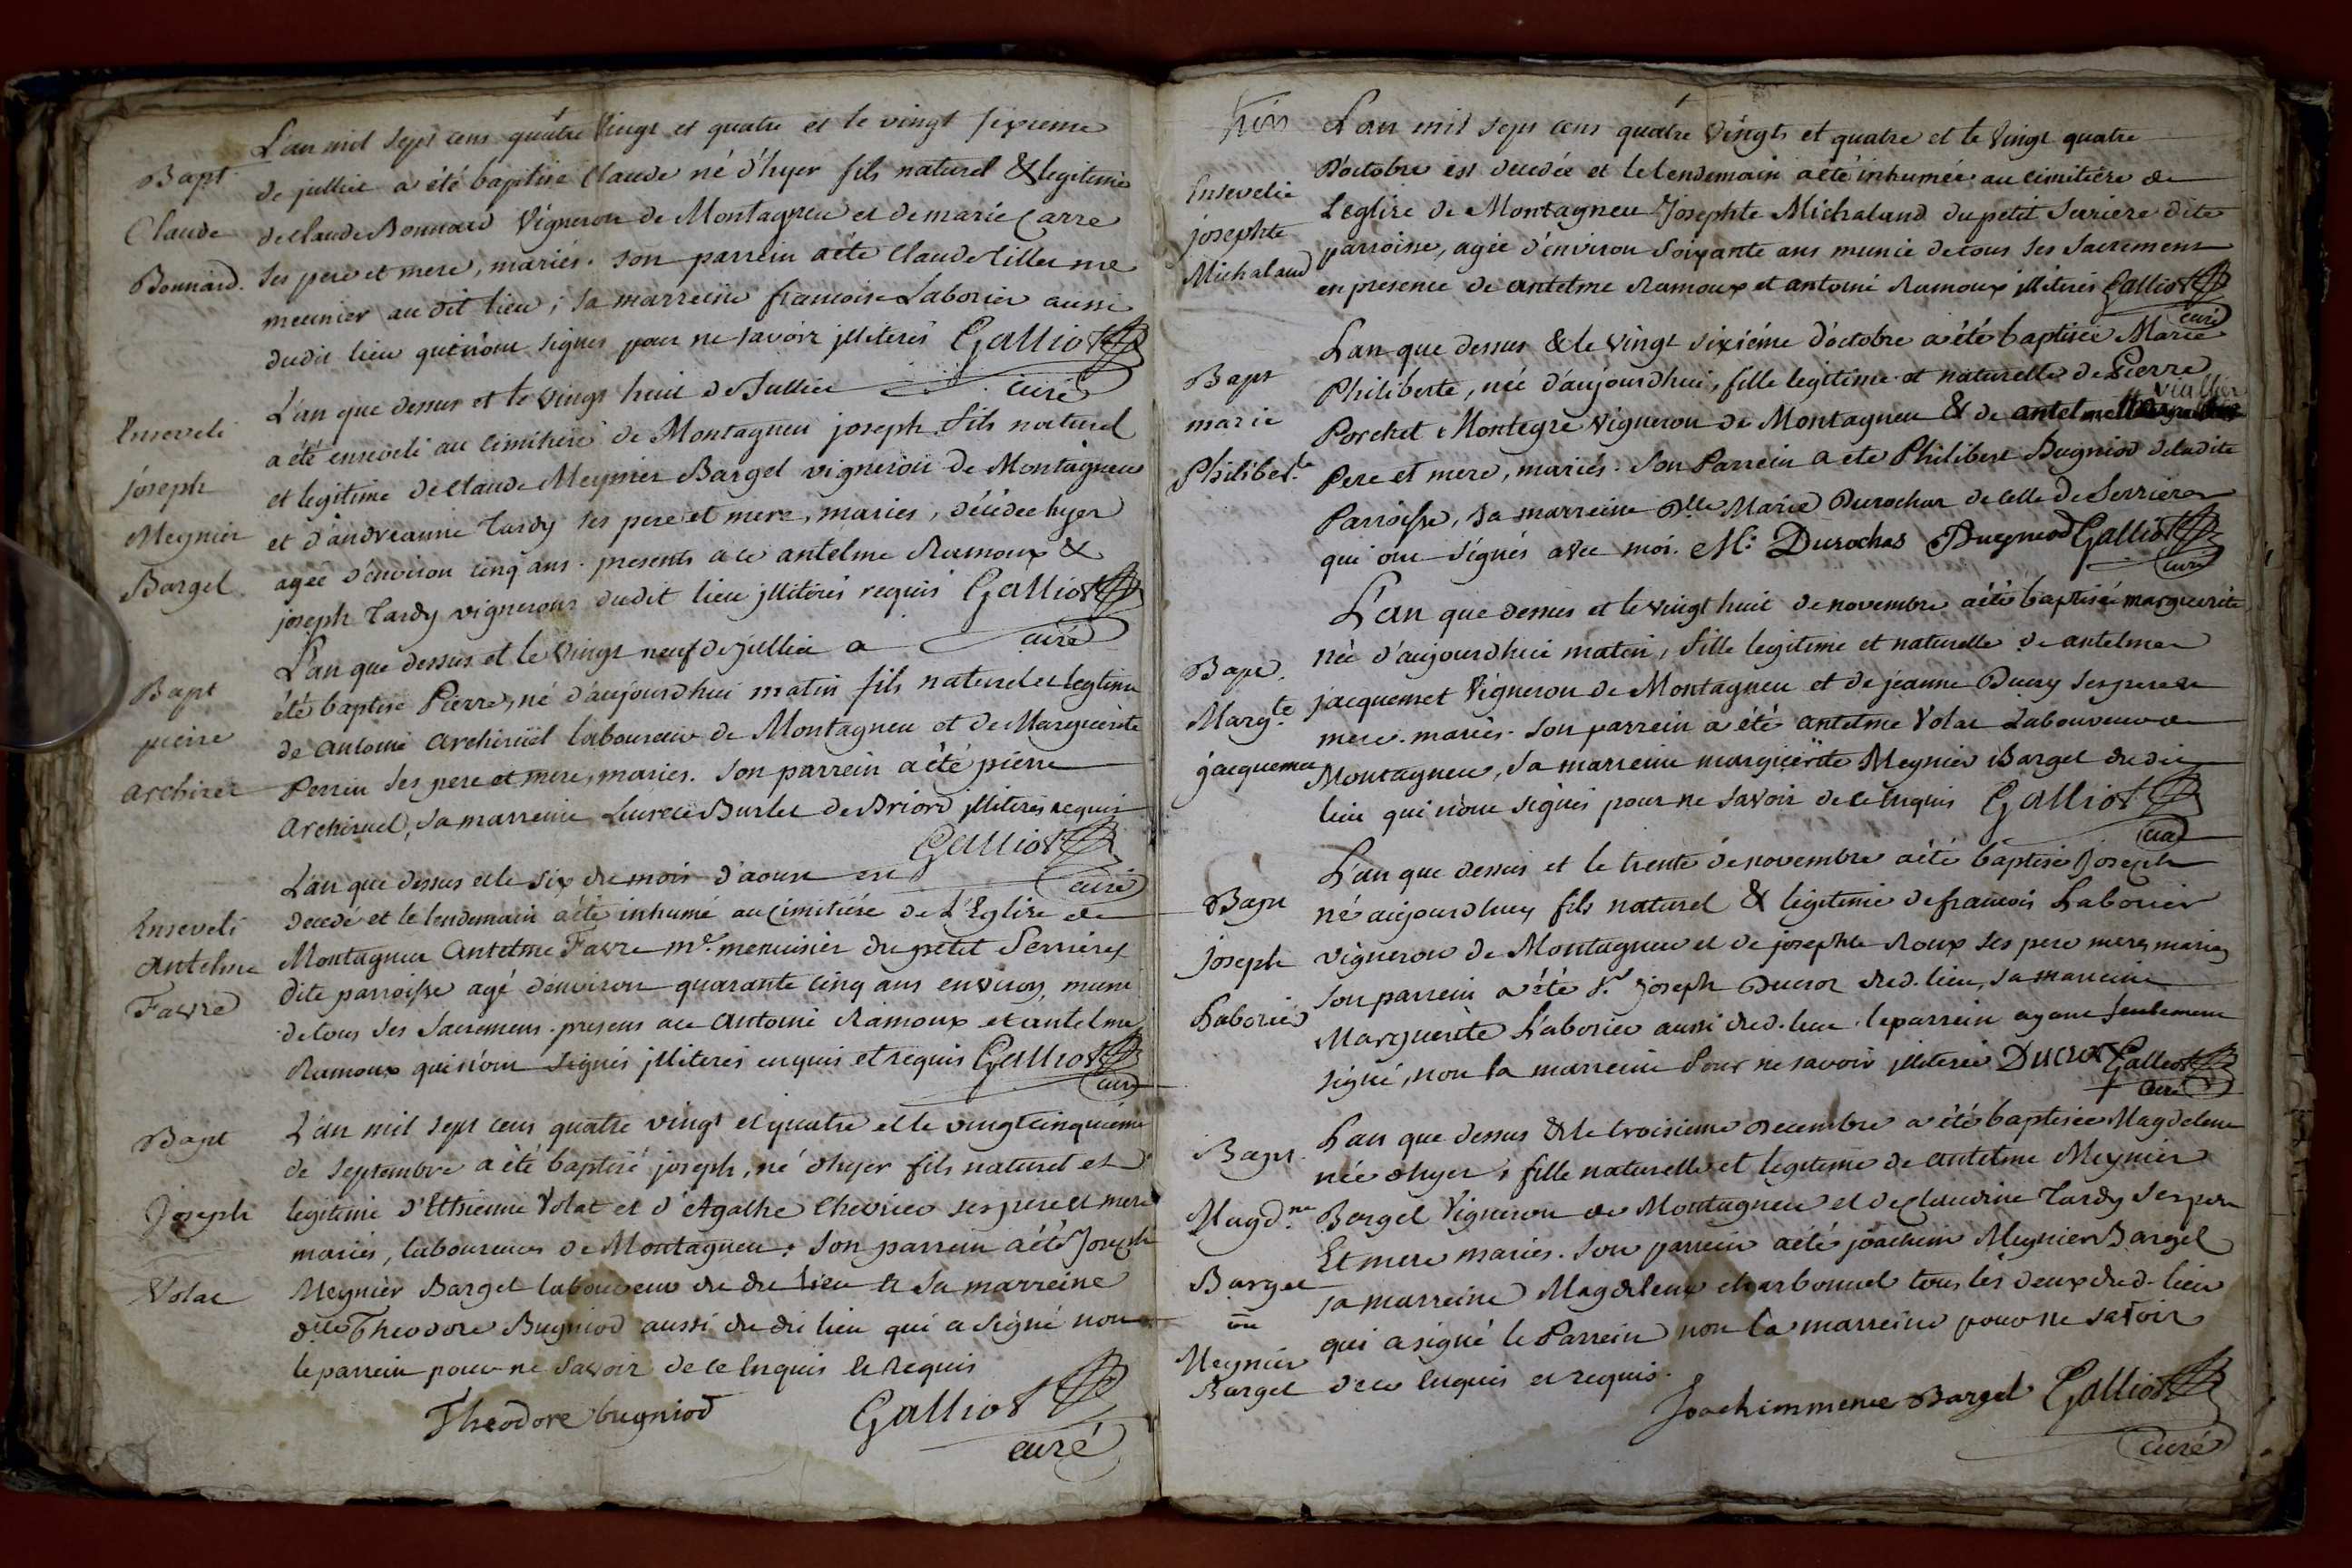 L'an mil sept cens quatre vingt et quatre et le vingt sixieme
Bapt de julliet a été baptisé Claude né d'hyer fils naturel & legitime
Claude de Claude Bonnard Vigneron de Montagneu et de marie Carre
Bonnard. ses pere et mere, mariés. son parrein a été Claude
meunier au dit lieu; sa marreine francoise Laborier aussi
dudit lieu qui n'ont signes pour ne savoir jlliterés Galliot
curé
L'an que dessus et le vingt huit de Julliet
Enseveli a été enseveli au cimitiere de Montagneu joseph fils naturel
joseph et legitime de Claude Meynier Bargel vigneron de Montagneu
Meynier et d'andreanne Tardy ses pere et mere, maries, décédee hyer
Bargel agée d'environ cinq ans. presents a ce antelme Ramoux &
joseph Tardy vignerons dudit lieu jlliterés requis Galliot
curé
L'an que dessus et le vingt neuf de julliet a
Bapt été baptisé Pierre, né d'aujourdhui matin fils naturel et legitime
pierre de antoine archiruel laboureur de Montagneu et de Marguerite
archirel Perrin ses pere et mere, maries. son parrein a été pierre
archiruel, sa marreine Lucrece Burlet de Briord jlliterés requis
Galliot
curé
L'an que dessus et le six du mois d'aoust est
Enseveli decedé et le lendemain a été inhumé au cimitiére de L'Eglise de
antelme Montagneu antelme Favre mr. menuisier du petit Serrieres
Favre dite parroisse agé d'environ quarante cinq ans environ, muni
de tous ses sacremens. presens a ce antoine Ramoux et antelme
Ramoux qui n'ont signés jlliterés enquis et requis Galliot
curé
Bapt L'an mil sept cens quatre vingt et quatre et le vingt cinquieme
de septembre a été baptisé joseph, né d'hyer fils naturel et
Joseph legitime d'Ethienne Volat et d'Agathe Chevrier ses pere et mere
mariés, laboureurs de Montagneu. son parrein a été Joseph
Volat Meynier Bargel laboureur du dit lieu & sa marreine
dlle Theodore Bugniod aussi du dit lieu qui a signé non
le parrein pour ne savoir de ce Enquis & Requis
Theodore bugniod Galliot
curé
L'an mil sept cens quatre vingts et quatre et le vingt quatre
Ensevelie d'octobre est decedée et le lendemain a été inhumée au cimitiére de
josephte L'eglise de Montagneu Josephte Michaland du petit Serriere dite
Michaland parroisse, agée d'environ soixante ans munie de tous ses sacremens
en presence de antelme Ramoux et antoine Ramoux jlliterés Galliot
curé
L'an que dessus & le vingt sixiéme d'octobre a été baptisée Marie
Bapt Philiberte, née d'aujourdhui, fille legitime et naturelle de Pierre
viallier
marie Porchet Montegre vigneron de Montagneu & de antelmette
Philiberte Pere et mere, mariés. son Parrein a ete Philibert Bugniod de la dite
Parroisse, sa marreine dlle Marie Durochat de celle de Serrieres
qui ont signés avec moi. M: Durochas Bugniod Galliot
curé
L'an que dessus et le vingt huit de novembre a été baptisée marguerite
Bapt. née d'aujourdhui matin, fille legitime et naturelle de antelme
Margte jacquemet Vigneron de Montagneu et de jeanne Ducry ses pere et
jacquemet mere. mariés. son parrein a été antelme Volat Laboureur de
Montagneu, sa marreine marguerite Meynier Bargel du dit
lieu qui n'ont signés pour ne savoir de ce Enquis Galliot
curé
L'an que dessus et le trente de novembre a été baptisé Joseph
Bapt né aujourdhuy fils naturel & legitime de francois Laborier
joseph vigneron de Montagneu et de josephte Roux ses pere mere, maries
Laborier son parrein a été Sr. joseph Ducroz dud. lieu, sa marreine
Marguerite Laborier aussi dud. lieu. le parrein ayant seulement
signé, non la marreine pour ne savoir jlliterée Ducroz Galliot
curé
L'an que dessus & le troisieme decembre a été baptisée Magdeleine
Bapt. née d'hyer, fille naturelle et legitime de antelme Meynier
Magdne Bargel Vigneron de Montagneu et de Claudine Tardy ses pere
Et mere maries. son parrein a été joachim Meynier Bargel
Bargel sa marreine Magdeleine charbonnel tous les deux dud. lieu
ou qui a signé le Parrein non la marreine pour ne savoir
Meynier
Bargel de ce Enquis et requis.
Joachimmenie Bargel Galliot
curé